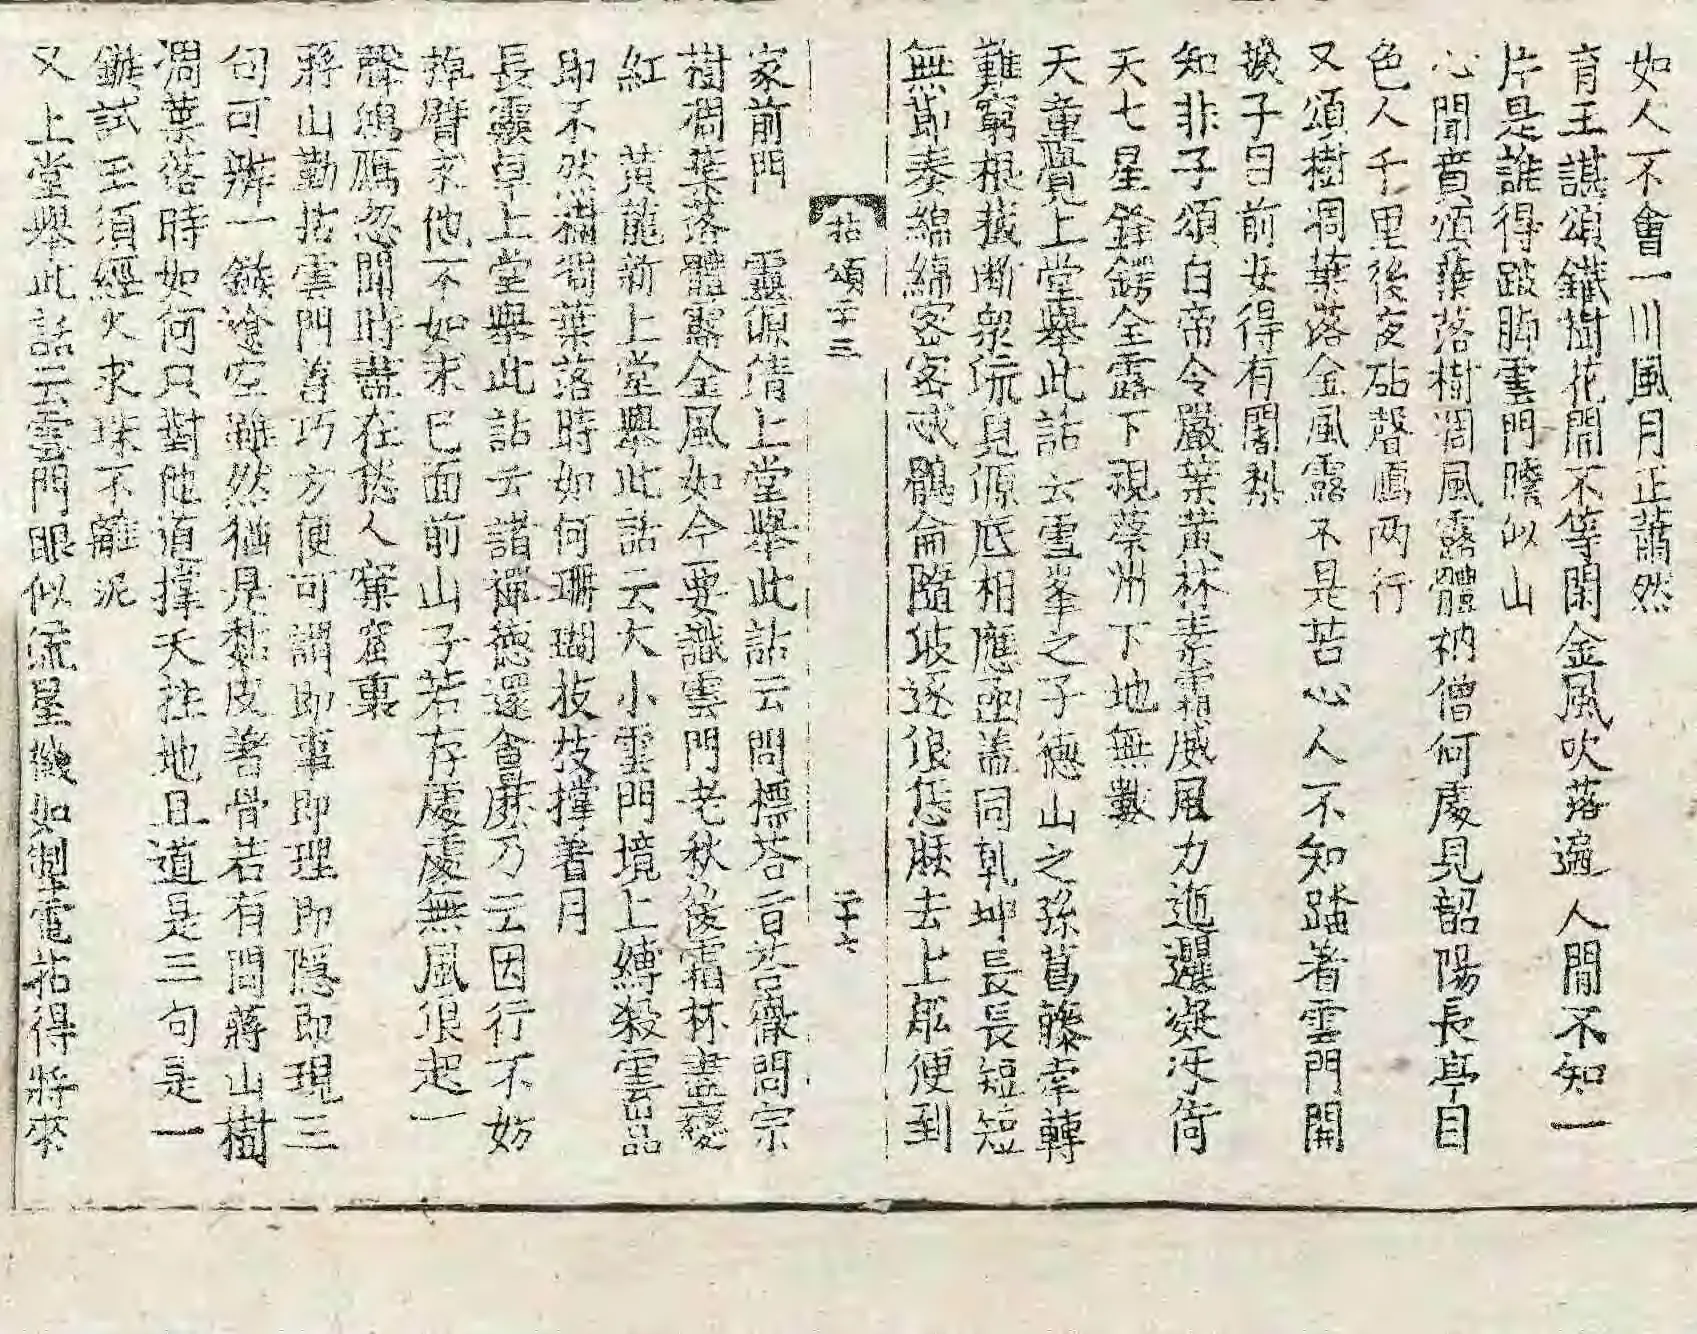 如人不會一川風月正蕭然
育王諶頌鐵樹花開不等閑金風吹落遍人間不知一
片是誰得跛脚雲門瞻似山
心聞賁頌葉落樹凋風露體衲僧何處見韶陽長亭目
色人千里後夜砧聲鴈兩行
又頌樹凋葉落金風露不是苦心人不知踏著雲門開
捩子目前安得有闍梨
知非子頌白帝令嚴葉黃林素霜威風力迤邐凝冱倚
天七星鋒鍔全露下視蔡州下地無數
天童覺上堂舉此話云雪峯之子德山之孫葛藤牽轉
難窮根截斷衆流見源底相應函盖同乹坤長長短短
無節奏綿綿密密忒鶻侖隨波逐浪恁麽去上舩便到
拈頌二十三
二十六
家前門　靈源淸上堂舉此話云問標荅盲荅徹問宗
樹凋葉落體露金風如今要識雲門老秋後霜林盡變
紅　黃龍新上堂舉此話云大小雲門境上縛殺雲嵒
即不然樹凋葉落時如何珊瑚枝枝撑著月
長靈卓上堂舉此話云諸禪德還會麽乃云因行不妨
掉臂求他不如求已面前山子若存處處無風浪起一
聲鴻鴈忽聞時盡在愁人窠窟裏
蔣山勤拈雲門善巧方便可謂即事即理即隱即現三
句可辨一鏃遼空雖然猶是黏皮著骨若有問蔣山樹
凋葉落時如何只對他道撑天拄地且道是三句是一
鏃試玉須經火求珠不離泥
又上堂舉此話云雲門眼似流星機如掣電拈得將來